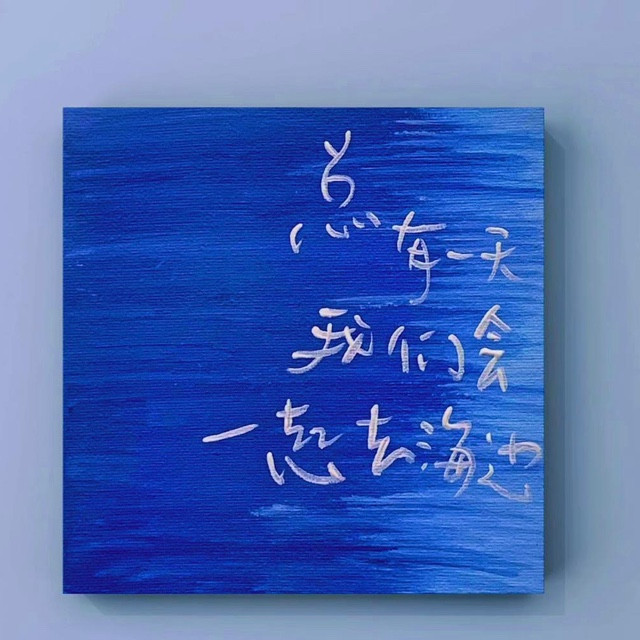 总有一天
我们会
一起去海边